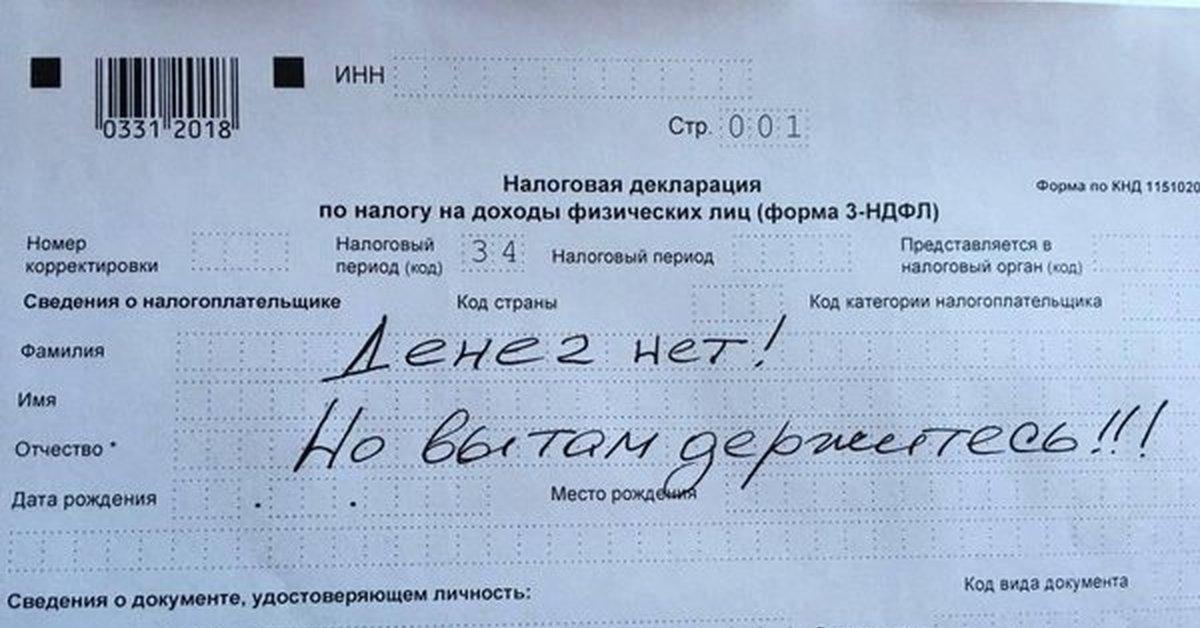 ИНН
0331 2018
Стр. 001
Налоговая декларация
по налогу на доходы физических лиц (форма 3-НДФЛ)
Форма по КНД 1151020
Номер корректировки
Налоговый период (код) 34
Налоговый период
Представляется в налоговый орган (код)
Сведения о налогоплательщике
Код страны
Код категории налогоплательщика
Фамилия
Денег нет!
Имя
Отчество *
Но вы там держитесь!!!
Дата рождения . .
Место рождения
Код вида документа
Сведения о документе, удостоверяющем личность: